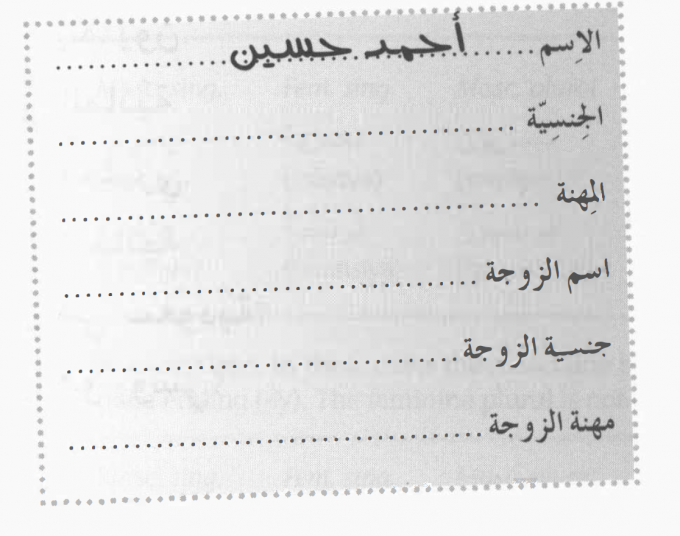 الاِسم .......... أحمد حسين ..........
الجِنسِيّة ..............................
المِهنة ..............................
اسم الزوجة ..............................
جنسية الزوجة ..............................
مهنة الزوجة ..............................